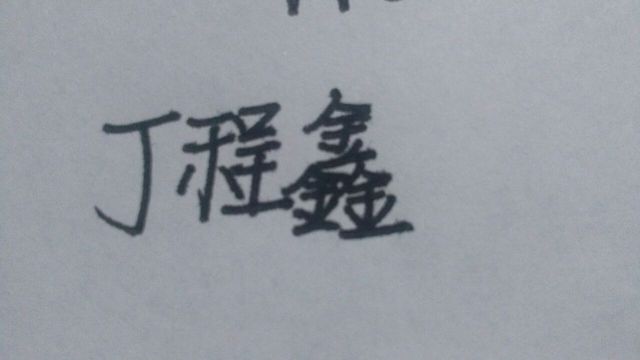 丁程鑫